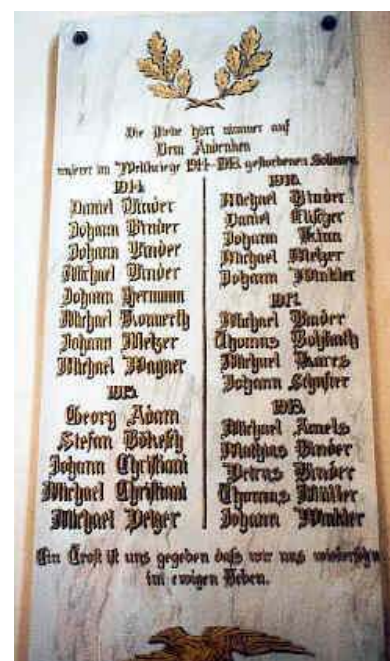 Die Liebe hört nimmer auf
Dem Andenken
unserer im Weltkriege 1914-1918 gestorbenen
1914.
Daniel Binder
Johann Binder
Johann Binder
Michael Binder
Johann Hermann
Michael Konnerth
Johann Melzer
Michael Wagner
1915.
Georg Adam
Stefan Bökesch
Johann Christiani
Michael Christiani
Michael Melzer
1916.
Michael Binder
Daniel
Johann
Michael Melzer
Johann Winkler
1917.
Michael Binder
Thomas
Michael
Johann Schuster
1918.
Michael
Mathias Binder
Petrus Binder
Thomas Müller
Johann Winkler
Ein Trost ist uns gegeben dass wir uns wiedersehn
im ewigen Leben.